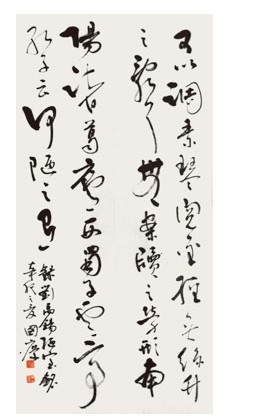 可以調素琴閱金經無絲竹
之亂耳無案牘之勞形南
陽諸葛廬西蜀子雲亭
孔子云何陋之有
錄劉禹錫陋室銘
之夏國